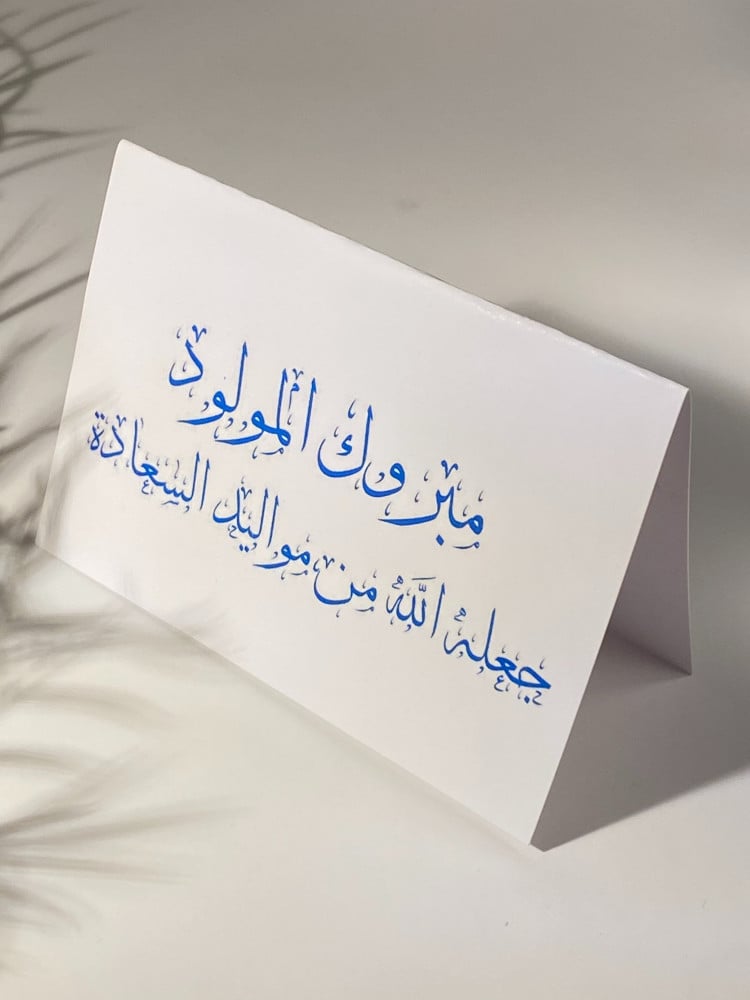 مبروك المولود
جعله الله من مواليد السعادة